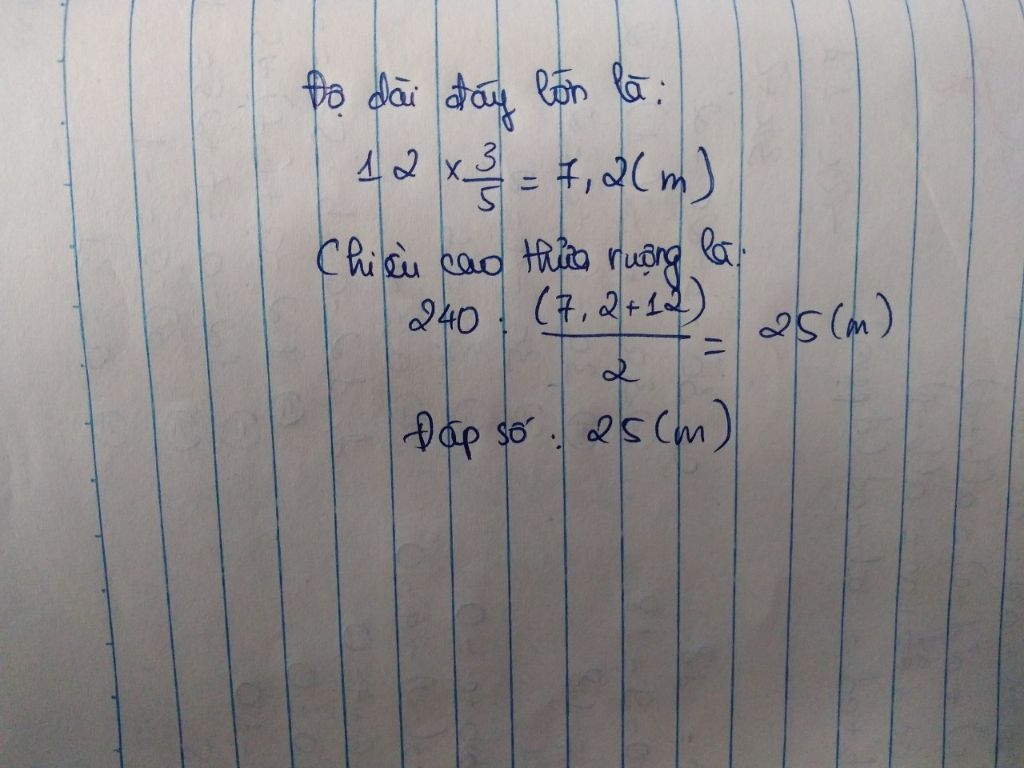 Độ dài đáy lớn là:
12 × 3/5 = 7,2 (m)
Chiều cao thửa ruộng là:
240 : (7,2+12)/2 = 25 (m)
Đáp số : 25 (m)